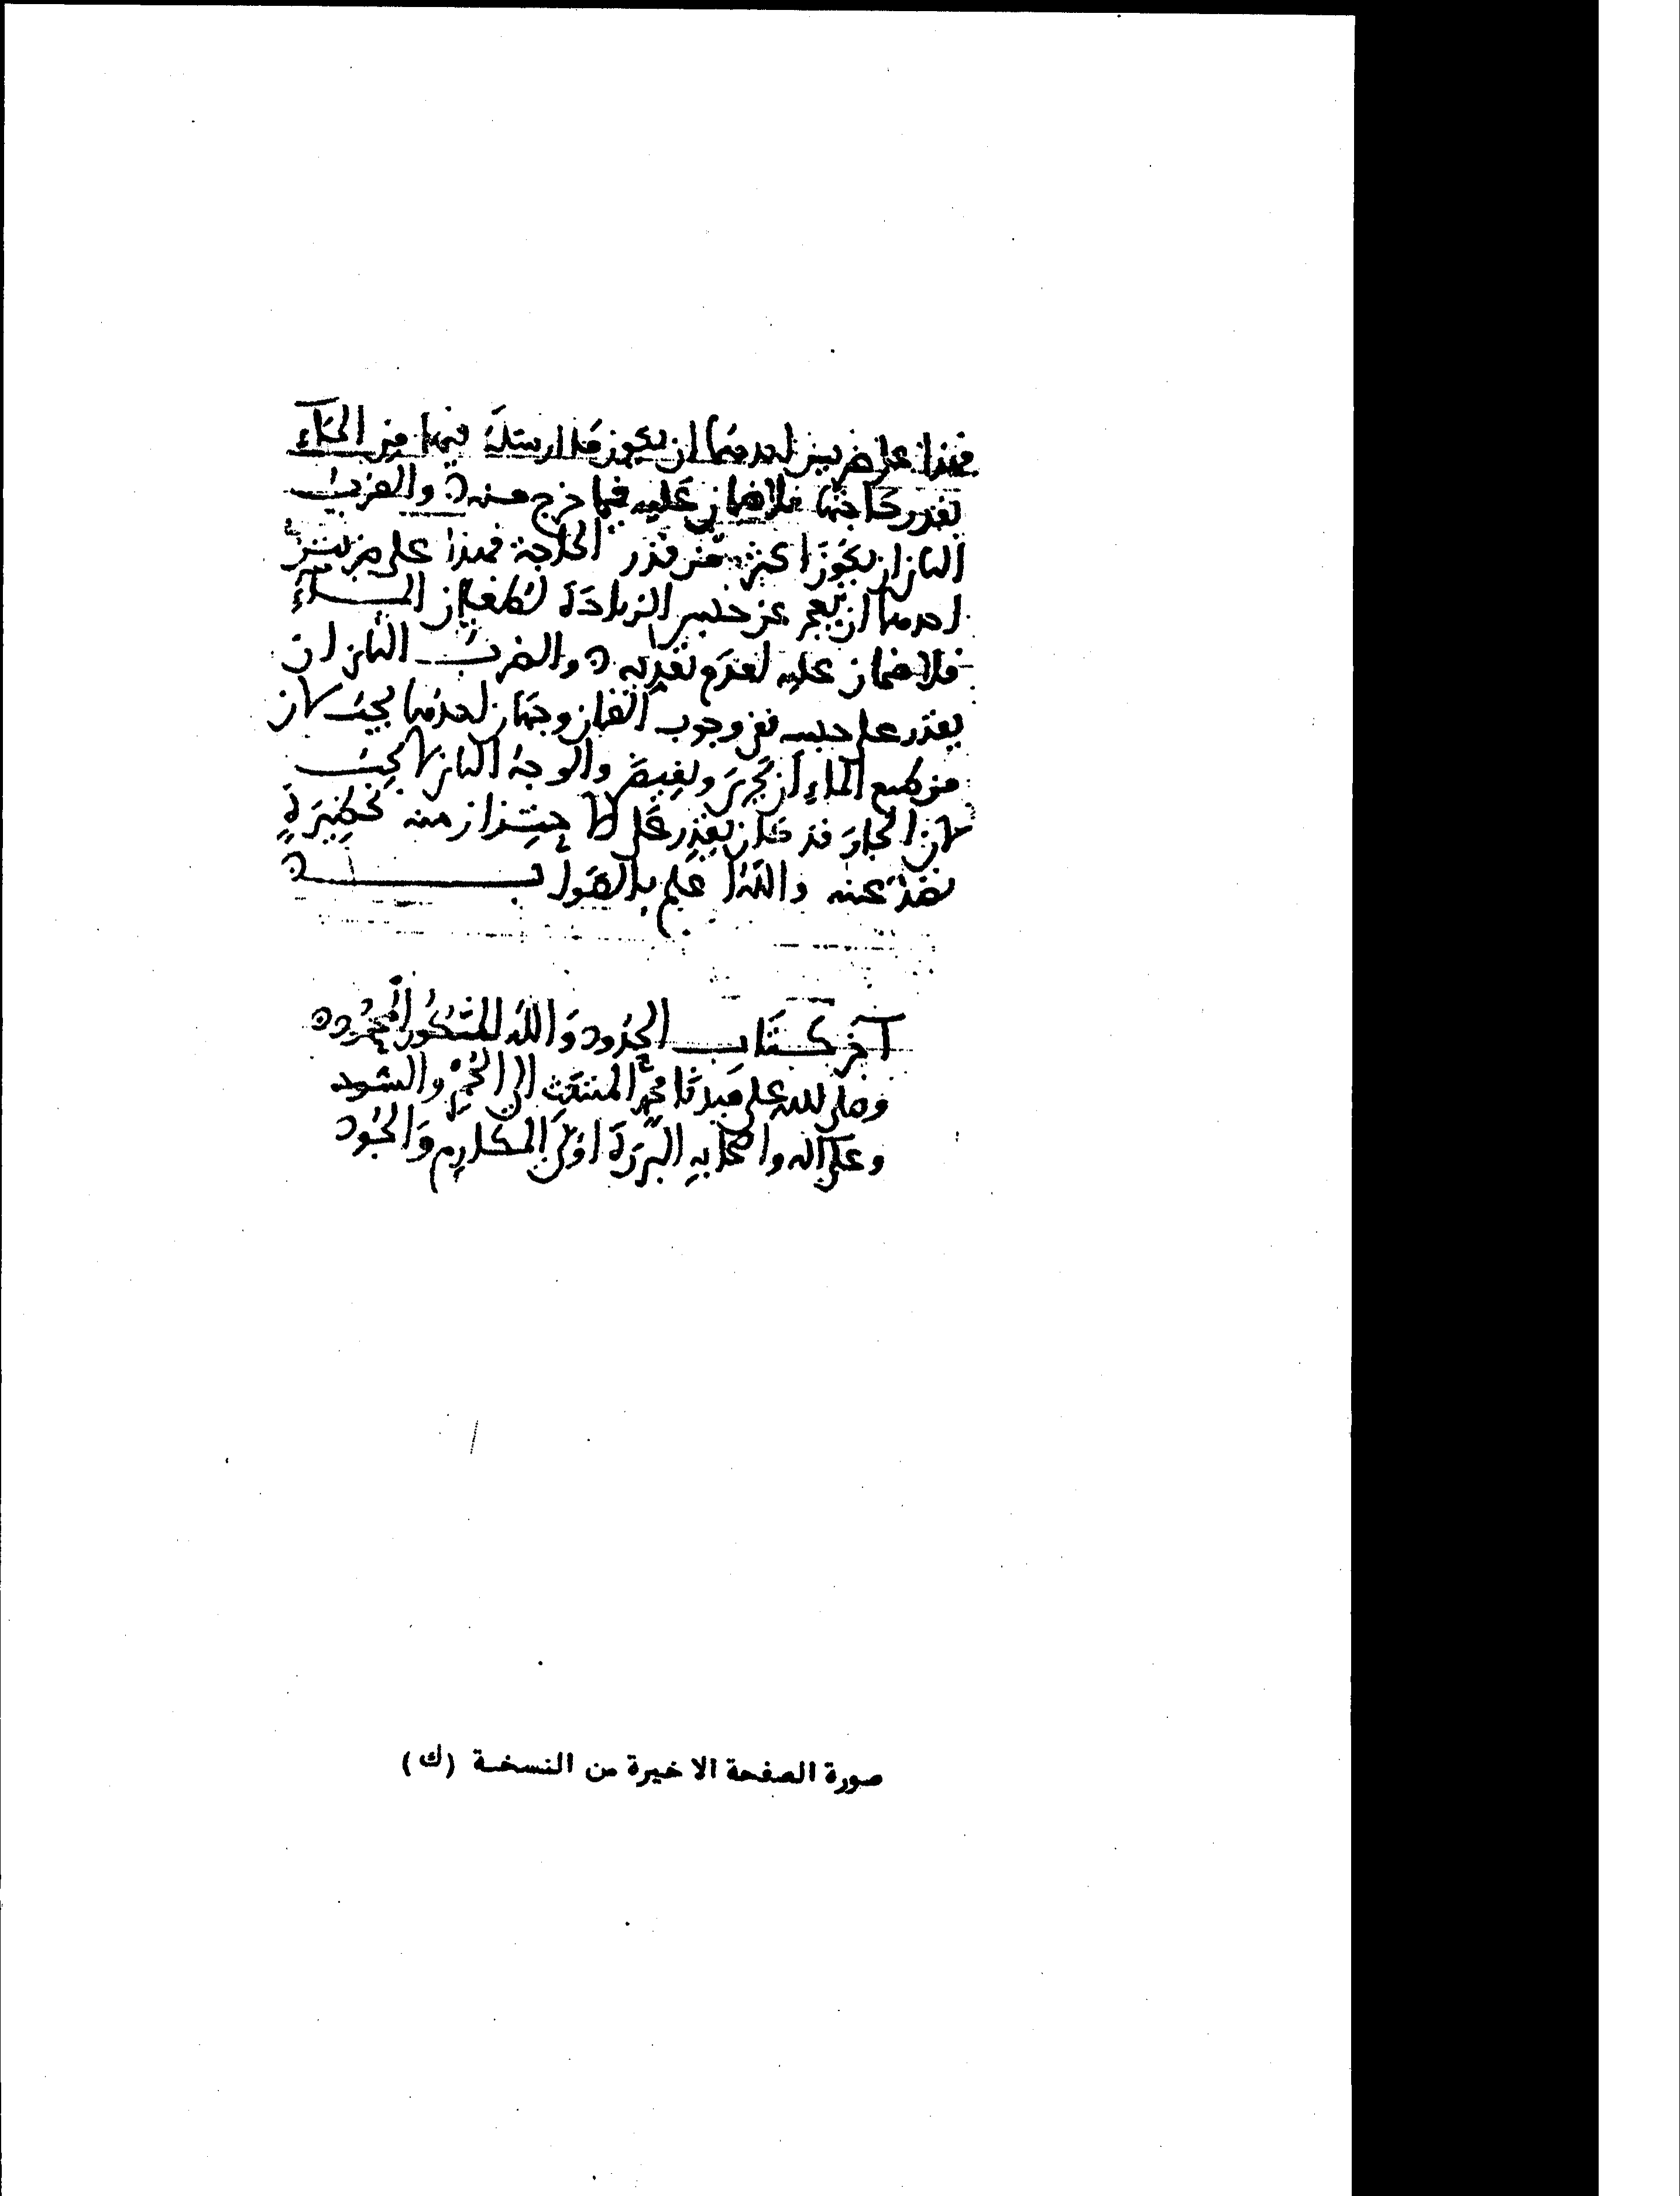 فهذا على ضربين احدهما ان يكون ما ارسله فيها من الماء
بقدر حاجتها فلا ضمان عليه فيما خرج منه والضرب
الثاني ان يكون اكثر من قدر الحاجة فهذا على ضربين
احدهما ان يعجز عن حبس الزيادة لطغيان المــاء
فلا ضمان عليه لعدم تعديه والضرب الثاني ان
يقدر على حبسه ففي وجوب الضمان وجهان احدهما يجب لان
من طبع الماء ان يجري ويفيض والوجه الثاني لا يجب
لان الجار قد كان يقدر على الاحتراز منه بحظيرة
تصد عنه والله اعلم بالصواب
آخر كتاب الحدود والله المشكور المحمود
وصلى الله على سيدنا محمد المنتعث الى الحمر والسود
وعلى اله واصحابه البررة اولي المكارم والجود
صورة الصفحة الاخيرة من النسخة (ك)